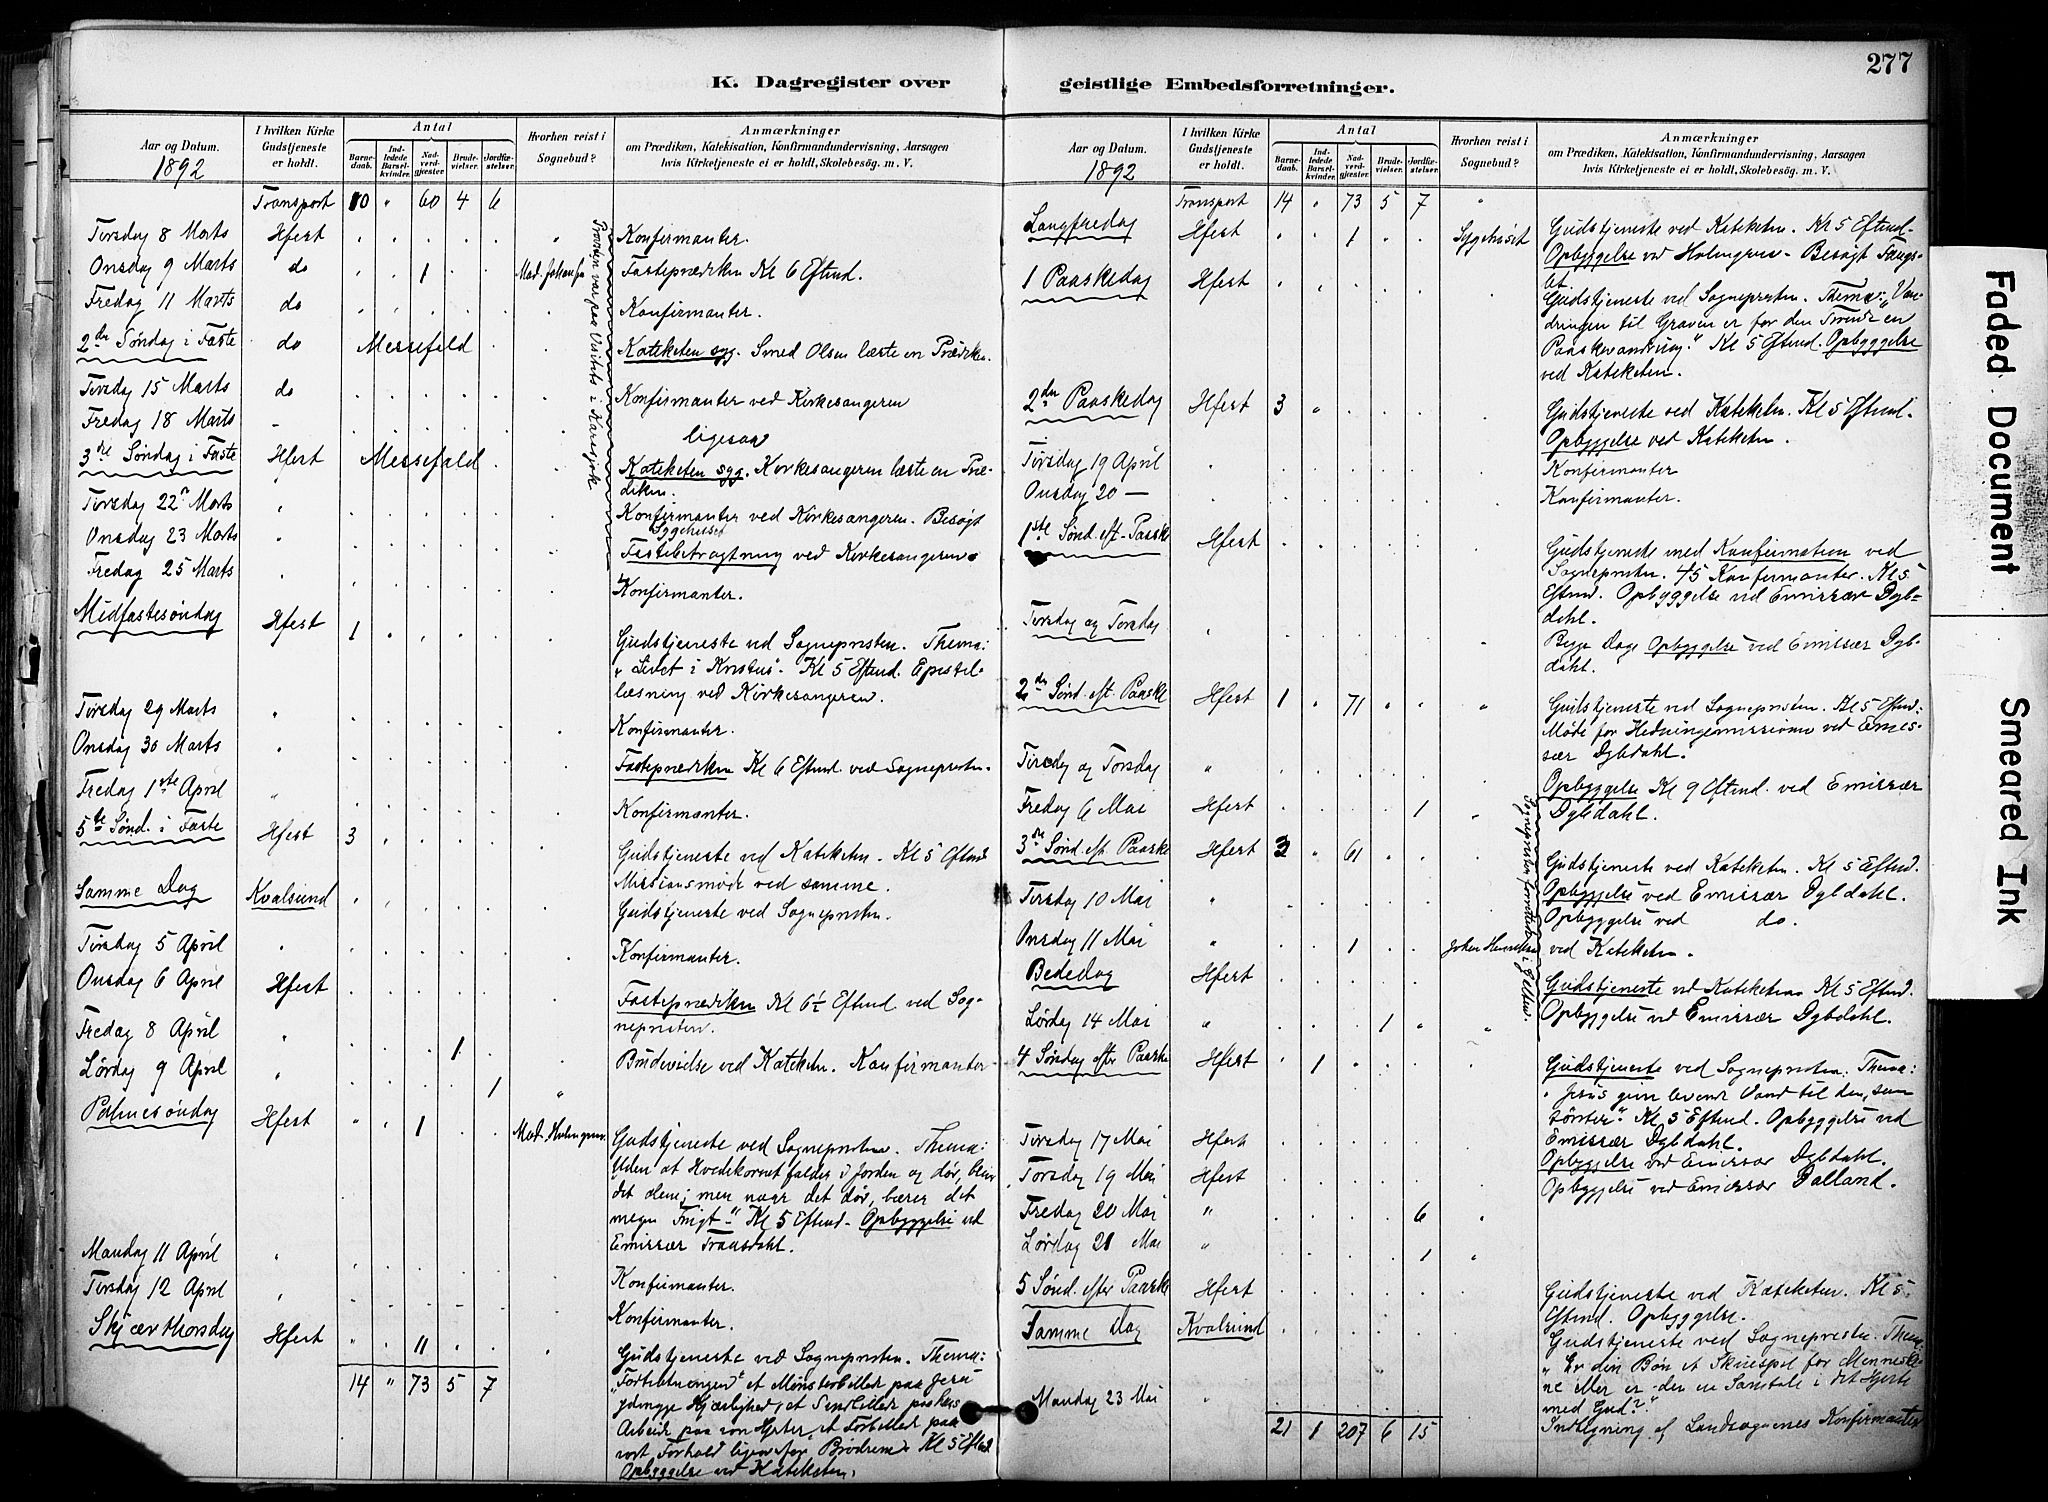 277
K. Dagregister over geistlige Embedsforretninger.
Aar og Datum.
1892
I hvilken Kirke Gudstjeneste er holdt.
Antal
Barnedaab.
Indledede Barselkvinder.
Nadverdgjæster.
Brudevielser.
Jordfæstelser.
Hvorhen reist i Sognebud?
Anmærkninger
om Prædiken, Katekisation, Konfirmandundervisning, Aarsagen
hvis Kirketjeneste ei er holdt, Skolebesøg. m. V.
Transport 10 " 60 4 6
Tirsdag 8 Marts Hfest Konfirmanter.
Onsdag 9 Marts do 1 Mad. Fasteprædiken Kl 6 Eftmd.
Fredag 11 Marts do Konfirmanter.
2den Søndag i Faste do Messefald Kateketen syg. Smed Olsen læste en Prædiken.
Tirsdag 15 Marts do Konfirmanter ved Kirkesangeren
Fredag 18 Marts - ligesaa
3die Søndag i Faste Hfest Messefald Kateketen syg. Kirkesangeren læste en Præ-
diken.
Tirsdag 22 Marts " Konfirmanter ved Kirkesangeren. Besøgt
Sygehuset
Onsdag 23 Marts " Fastebetragtning ved Kirkesangeren
Fredag 25 Marts " Konfirmanter.
Provsten var paa Visitats i Karasjok
Midfastesøndag Hfest 1 " Gudstjeneste ved Sognepresten. Thema:
"Livet i Kristus". Kl 5 Eftmd. Epistel-
læsning ved Kirkesangeren.
Tirsdag 29 Marts " Konfirmanter.
Onsdag 30 Marts " Fasteprædiken Kl 6 Eftmd. ved Sognepresten.
Fredag 1ste April " Konfirmanter.
5te Sønd. i Faste Hfest 3 " Gudstjeneste ved Kateketen. Kl 5 Eftmd
Missionsmøde ved samme.
Samme Dag Kvalsund Gudstjeneste ved Sognepresten.
Tirsdag 5 April " Konfirmanter.
Onsdag 6 April Hfest Fasteprædiken Kl 6½ Eftmd ved Sog-
nepresten.
Fredag 8 April " 1 Brudevielse ved Kateketen. Konfirmanter
Lørdag 9 April " 1 "
Palmesøndag Hfest " 1 Mad. Holmgren. Gudstjeneste ved Sognepresten. Thema:
Uden at Hvedekornet falder i Jorden og dør, bliver
det alene; men naar det dør, bærer det
megen Frugt." Kl 5 Eftmd. Opbyggelse ved
Emissær
Mandag 11 April " Konfirmanter.
Tirsdag 12 April Konfirmanter.
Skjærthorsdag Hfest " 11 Gudstjeneste ved Sognepresten. Thema:
"Fodtvetningen" et Mønsterbillede paa Jesu
ydmyge Kjærlighed, et Sindbillede paa hans
Arbeide paa vore Hjerter, et Forbillede paa
vort Forhold ligeoverfor Brødrene. Kl 5 Eftmd.
Opbyggelse ved Kateketen.
14 " 73 5 7
Aar og Datum.
1892
I hvilken Kirke Gudstjeneste er holdt.
Antal
Barnedaab.
Indledede Barselkvinder.
Nadverdgjæster.
Brudevielser.
Jordfæstelser.
Hvorhen reist i Sognebud?
Anmærkninger
om Prædiken, Katekisation, Konfirmandundervisning, Aarsagen
hvis Kirketjeneste ei er holdt, Skolebesøg. m. V.
Transport 14 " 73 5 7 "
Langfredag Hfest 1 Sygehuset Gudstjeneste ved Kateketen. Kl 5 Eftmd.
Opbyggelse ved Holmgren. Besøgt Fængs-
let.
1 Paaskedag Hfest Gudstjeneste ved Sognepresten. Thema: "Van-
dringen til Graven er for den Troende en
Paaskevandring." Kl 5 Eftmd. Opbyggelse
ved Kateketen.
2den Paaskedag Hfest 3 " Gudstjeneste ved Kateketen. Kl 5 Eftmd.
Opbyggelse ved Kateketen.
Tirsdag 19 April Konfirmanter
Onsdag 20 — Konfirmanter.
1ste Sønd. eft. Paaske Hfest Gudstjeneste med Konfirmation ved
Sognepresten. 45 Konfirmanter. Kl 5
Eftmd. Opbyggelse ved Emissær Dybdahl.
Tirsdag og Torsdag " Begge Dage Opbyggelse ved Emissær Dyb-
dahl.
2den Sønd. eft. Paaske Hfest 1 " 71 " " " Gudstjeneste ved Sognepresten. Kl 5 Eftmd.
Møde for Hedningemissionen ved Emis-
sær Dybdahl.
Tirsdag og Torsdag " Opbyggelse Kl 9 Eftmd. ved Emissær
Dybdahl.
Fredag 6 Mai Hfest 1 "
3die Sønd. eft. Paaske Hfest 3 " 61 Gudstjeneste ved Kateketen. Kl 5 Eftmd.
Opbyggelse ved Emissær Dybdahl.
Tirsdag 10 Mai " Opbyggelse ved do.
Onsdag 11 Mai " 1 Johan ved Kateketen.
Bededag Hfest Gudstjeneste ved Kateketen Kl 5 Eftmd.
Opbyggelse ved Emissær Dybdahl.
Lørdag 14 Mai " 1 " "
4 Søndag efter Paaske Hfest 1 Gudstjeneste ved Sognepresten: Thema:
"Jesus giver levende Vand til den, som
tørster." Kl 5 Eftmd. Opbyggelse ved
Emissær Dybdahl.
Tirsdag 17 Mai Hfest Opbyggelse ved Emissær Dybdahl.
Torsdag 19 Mai Hfest Opbyggelse ved Emissær Dalland.
Fredag 20 Mai " 6 "
Lørdag 21 Mai " 1 "
5 Sønd. efter Paaske Hfest Gudstjeneste ved Kateketen. Kl 5
Eftmd. Opbyggelse.
Samme Dag Kvalsund Gudstjeneste ved Sognepresten. Thema:
"Er din Bøn et Skuespil for Menneske-
ne eller er den en Samtale i dit Hjerte
med Gud?"
Mandag 23 Mai " Indtegning af Landsognenes Konfirmanter
21 1 207 6 15
Faded Document
Smeared Ink